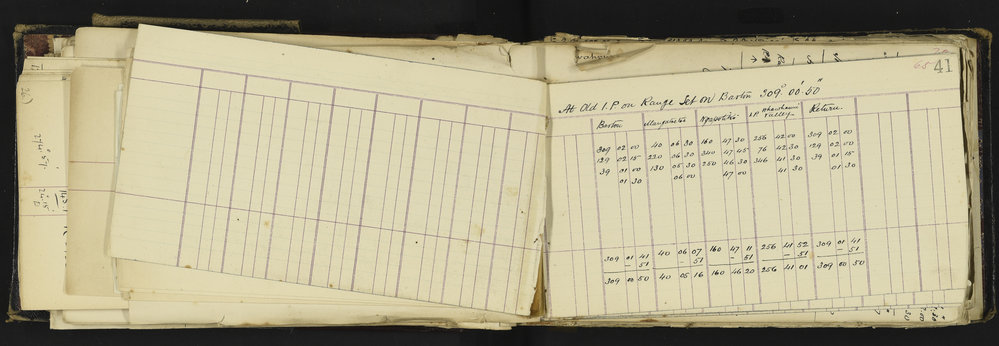 41
At Old I.P on Range Set on Barton 309° 00' 50"
Barton
I.P. Valley
Return
309 02 00 40 06 30 160 47 30 256 42 00 309 02 00
129 02 15 220 06 30 340 47 45 76 42 30 129 02 00
39 01 00 130 05 30 250 46 30 346 41 30 39 01 15
01 30 06 00 47 00 41 30 01 30
309 01 41 40 06 07 160 47 11 256 41 52 309 01 41
- 51 - 51 - 51 - 51 - 51
309 00 50 40 05 16 160 46 20 256 41 01 309 00 50